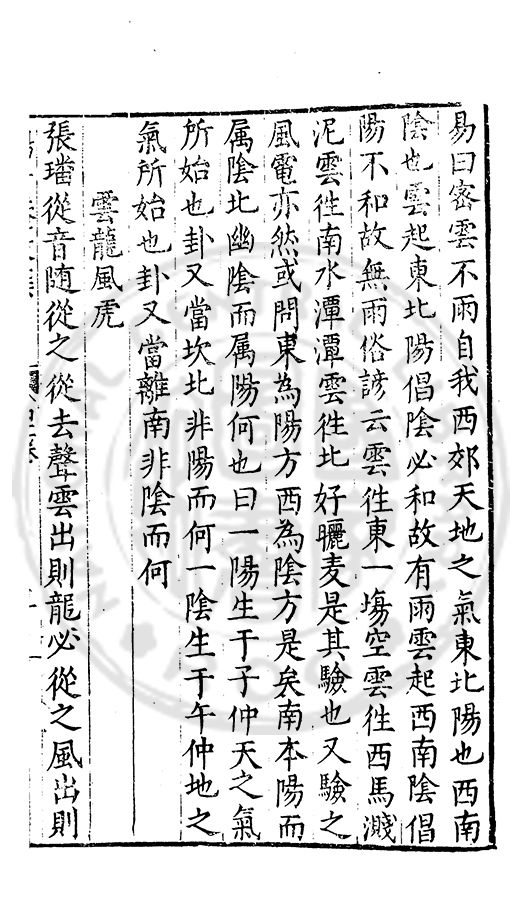 易曰密雲不雨自我西郊天地之氣東北陽也西南
陰也雲起東北陽倡陰必和故有雨雲起西南陰倡
陽不和故無雨俗諺云雲徃東一塲空雲徃西馬濺
泥雲徃南水潭潭雲徃北好曬麦是其驗也又驗之
風電亦然或問東為陽方西為陰方是矣南本陽而
属陰北幽陰而属陽何也曰一陽生于子仲天之氣
所始也卦又當坎北非陽而何一陰生于午仲地之
氣所始也卦又當離南非陰而何
雲龍風虎
張璠從音随從之從去聲雲出則龍必從之風出則